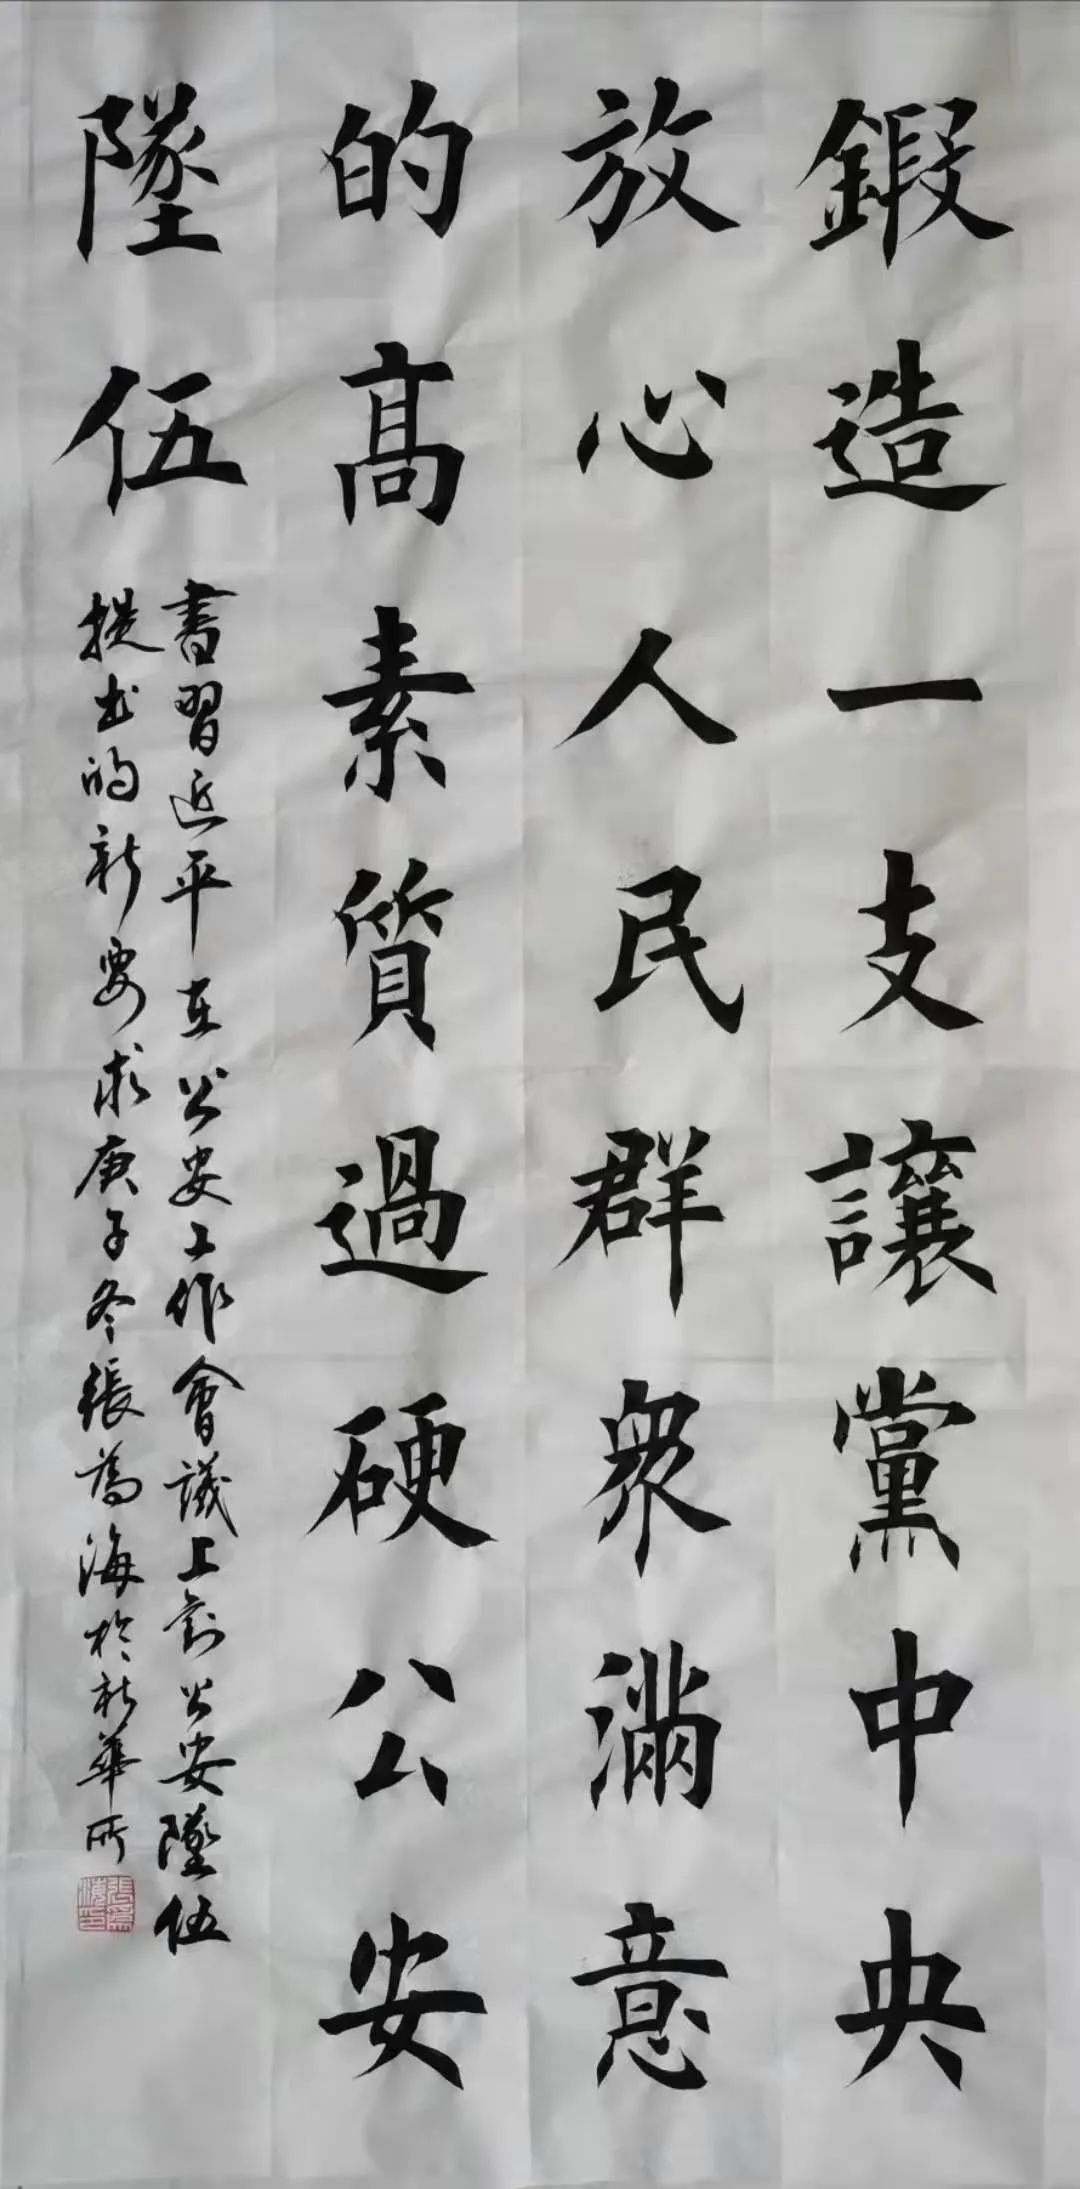 鍛造一支讓黨中央
放心人民群眾滿意
的高素質過硬公安
墜伍
書習近平在公安工作會議上對公安墜伍
提出的新要求庚子冬張為海於新華所
張為海印